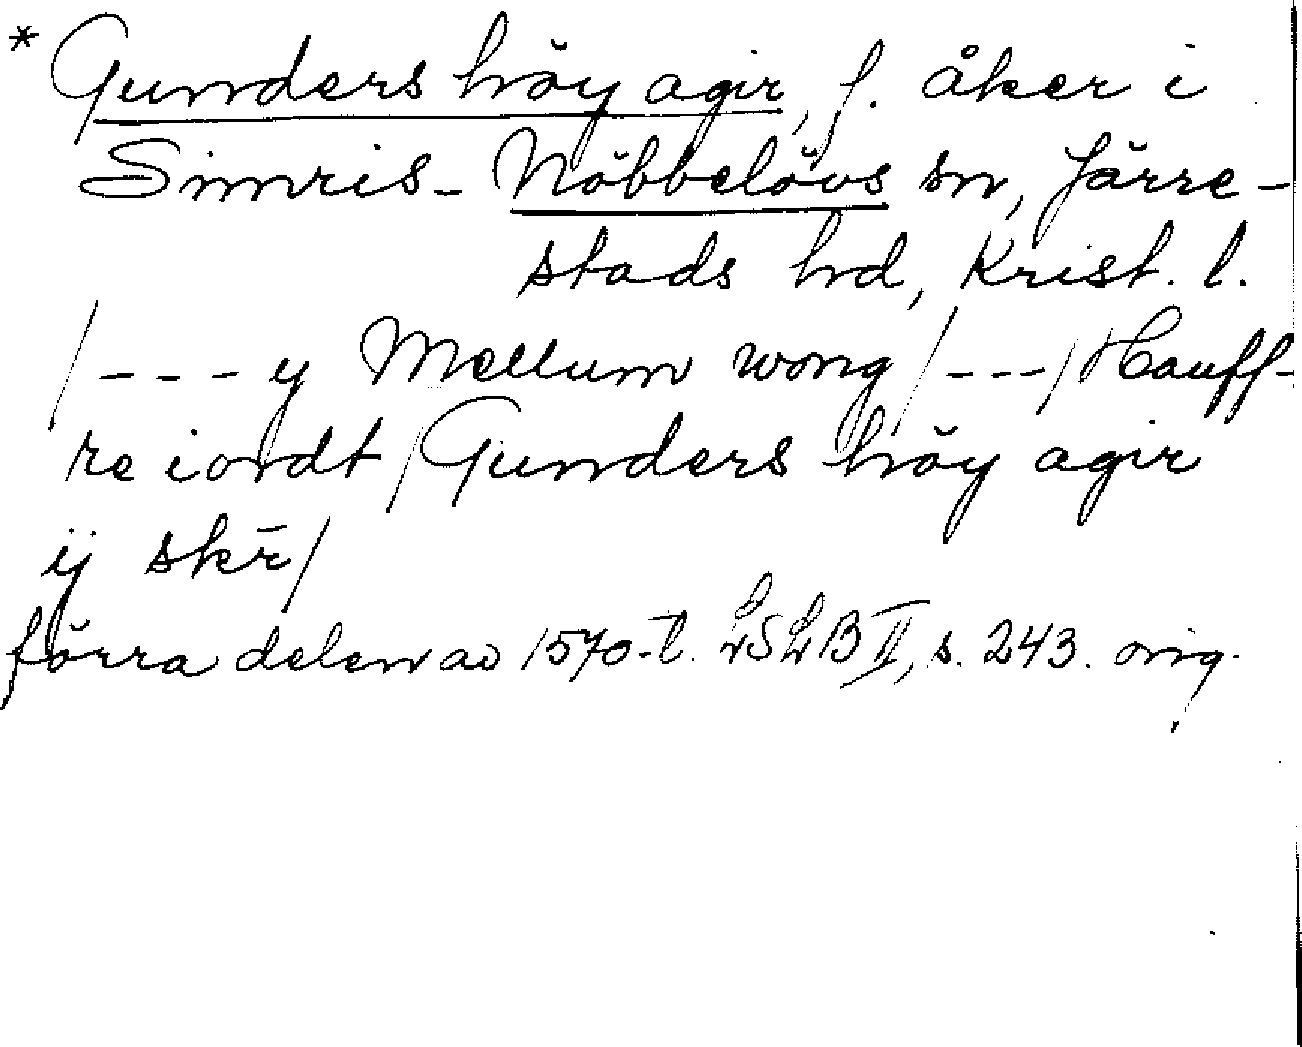 * Gunders höy agir, f. åker i
Simris- Nöbbelövs sn, Järre-
stads hd, Krist. l.
/--- y Mellum wong/---/Hauff-
re iordt/Gunders höy agir
ij skr̄/
förra delen av 1570-t. LSLB II, s. 243. orig.